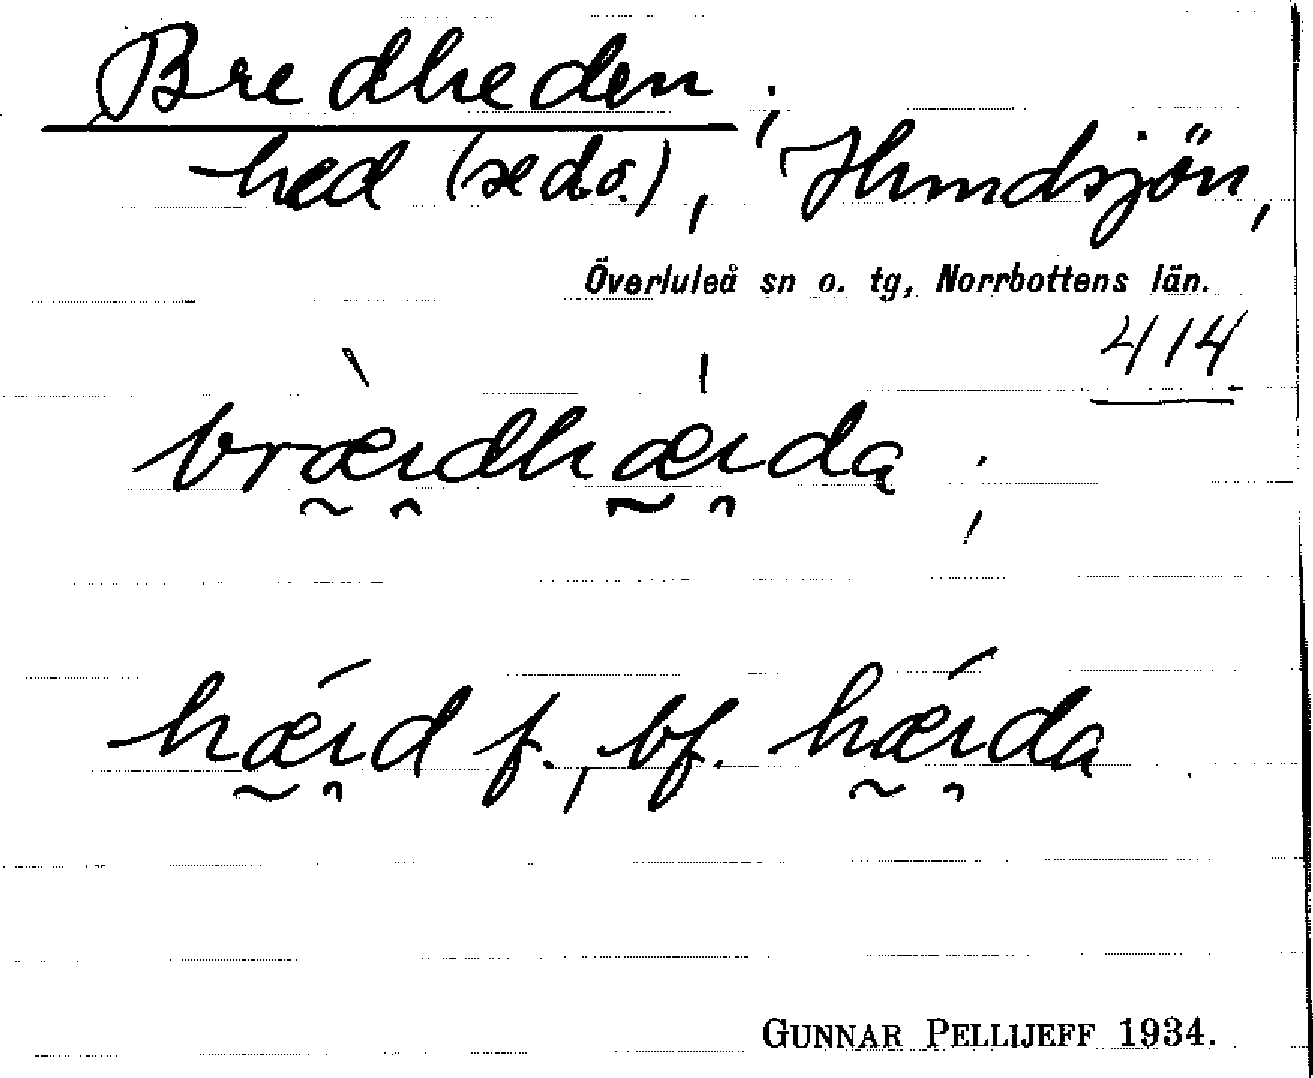 Bredheden;
hed (se d.o.), Hundsjön,
Överluleå sn o. tg, Norrbottens län.
414
bræ̰̀i̯dhǽ̰i̯da;
hǽ̰i̯d f., bf. hǽ̰i̯da
GUNNAR PELLIJEFF 1934.